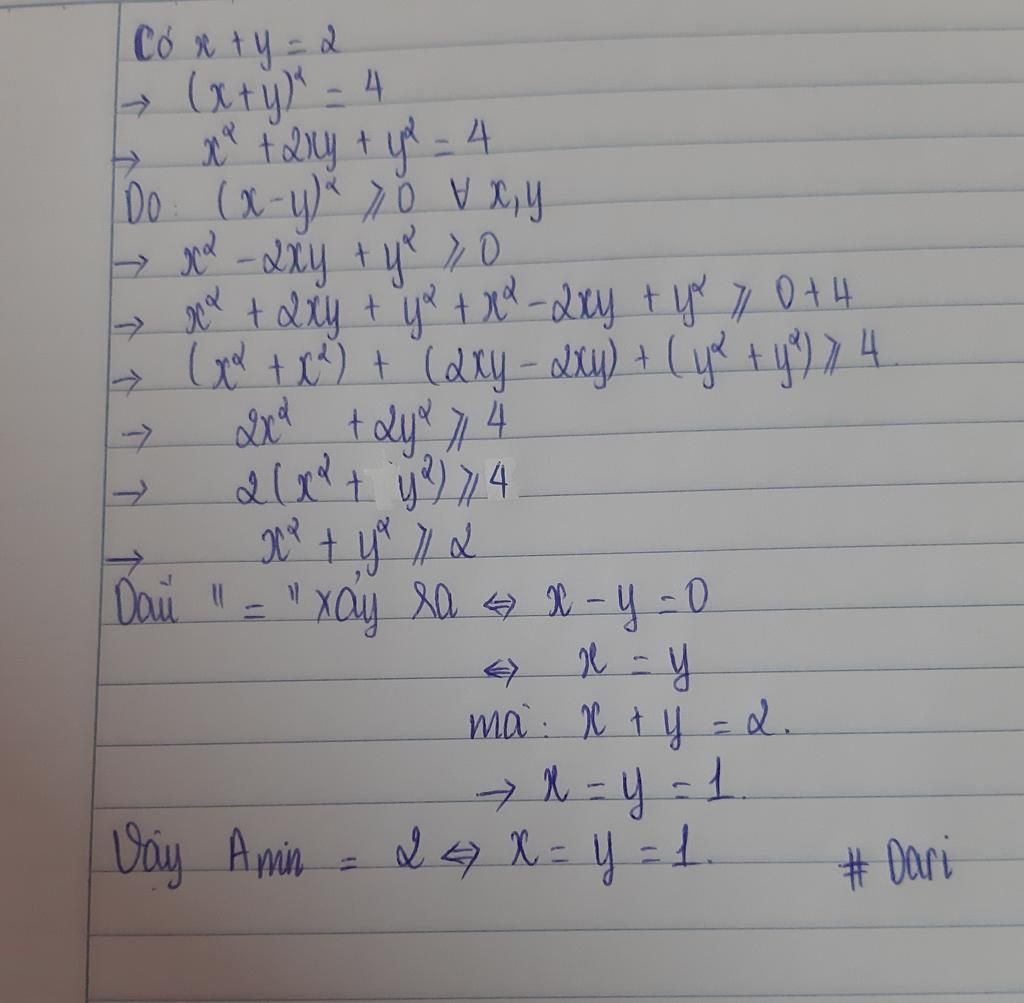 Có x + y = 2
→ (x+y)² = 4
→ x² + 2xy + y² = 4
Do: (x-y)² ⩾ 0 ∀ x,y
→ x² - 2xy + y² ⩾ 0
→ x² + 2xy + y² + x² - 2xy + y² ⩾ 0+4
→ (x² + x²) + (2xy - 2xy) + (y² + y²) ⩾ 4
→ 2x² + 2y² ⩾ 4
→ 2(x² + y²) ⩾ 4
→ x² + y² ⩾ 2
Dấu " = " xảy ra ⇔ x - y = 0
⇔ x = y
mà: x + y = 2.
→ x = y = 1.
Vậy Amin = 2 ⇔ x = y = 1. # Dari